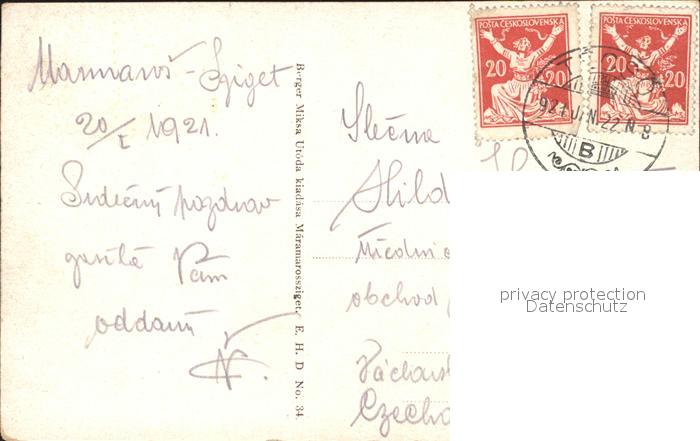 Marmaroš-Sziget
20/I 1921.
Srdečný pozdrav
Vám
oddaný
Berger Miksa Utóda kiadása Máramarossziget. E. H. D No. 34.
POŠTA ČESKOSLOVENSKÁ
20 20
POŠTA ČESKOSLOVENSKÁ
20 20
921 JAN. 22. N. 8
B
Slečna
Hild
obchod
Václavs
Czecho
privacy protection
Datenschutz